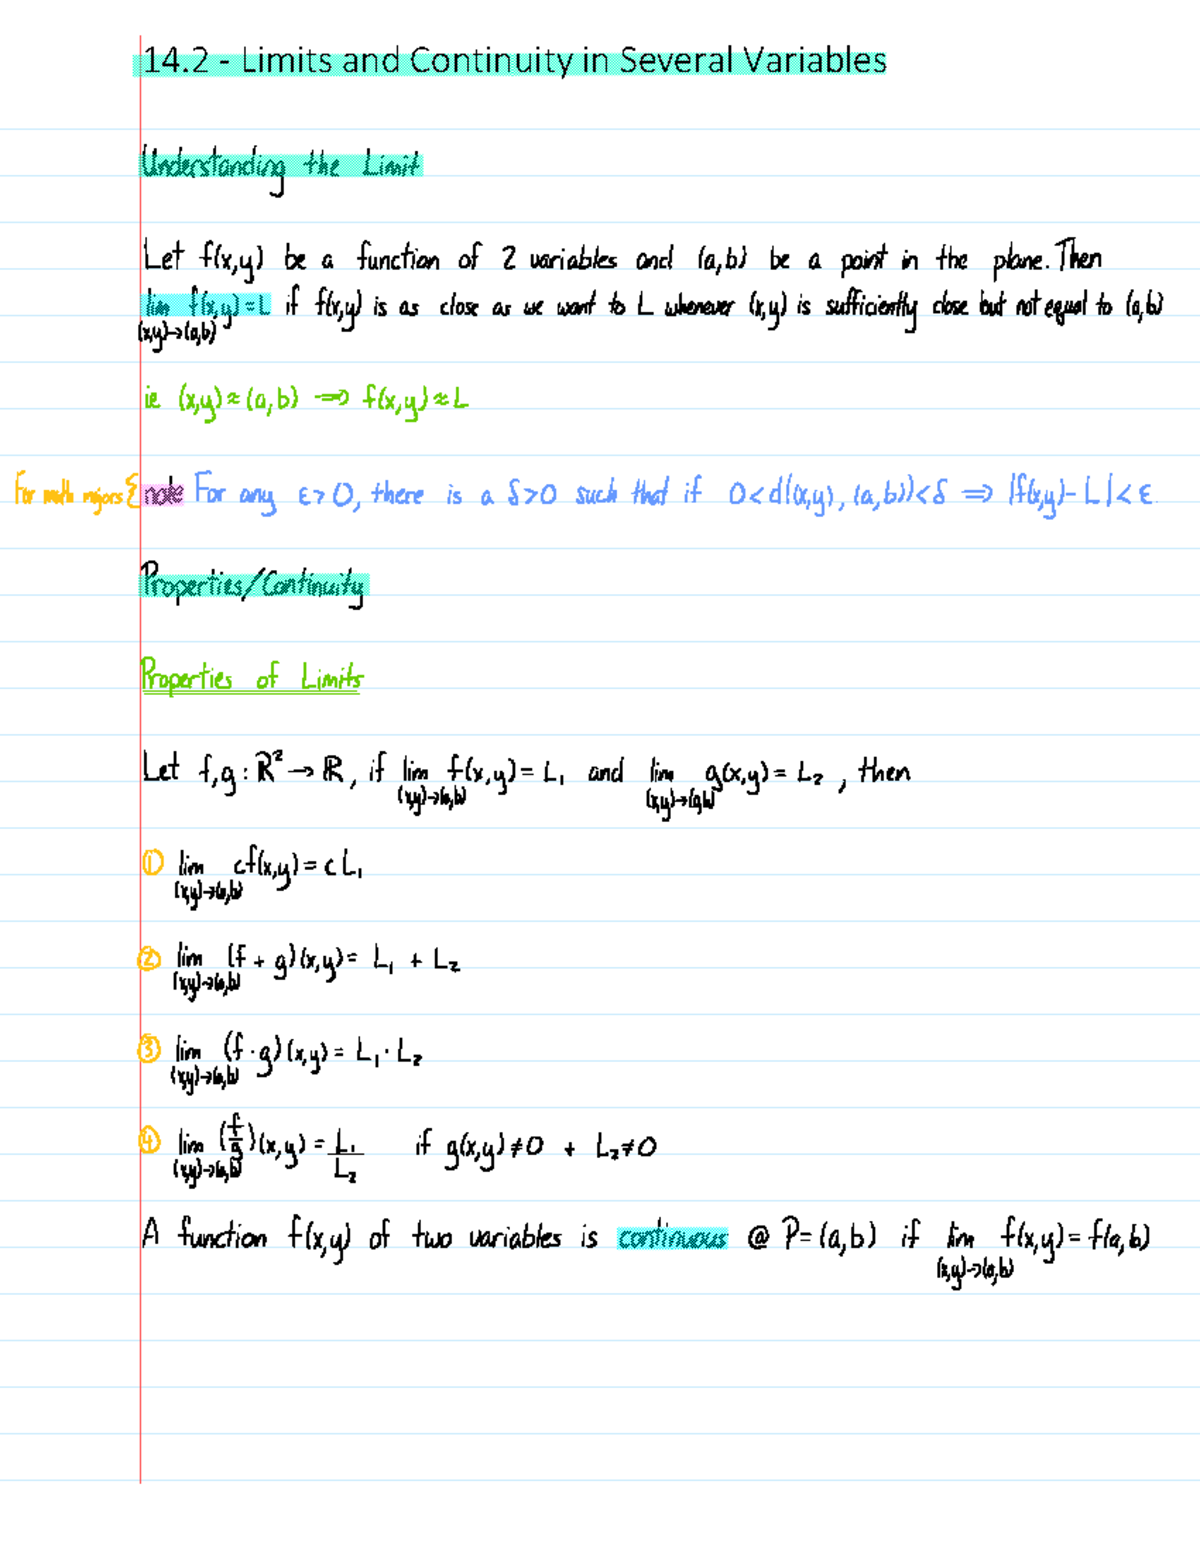 14.2 - Limits and Continuity in Several Variables
Understanding the Limit
Let f(x,y) be a function of 2 variables and (a,b) be a point in the plane. Then
lim f(x,y) = L if f(x,y) is as close as we want to L whenever (x,y) is sufficiently close but not equal to (a,b)
(x,y)→(a,b)
ie (x,y)≈(a,b) ⟹ f(x,y)≈L
For math majors { note For any ε>0, there is a δ>0 such that if 0<d((x,y),(a,b))<δ ⟹ |f(x,y)-L|<ε.
Properties/Continuity
Properties of Limits
Let f,g : ℝ² → ℝ, if lim f(x,y) = L₁ and lim g(x,y) = L₂, then
(x,y)→(a,b) (x,y)→(a,b)
① lim cf(x,y) = cL₁
(x,y)→(a,b)
② lim (f + g)(x,y) = L₁ + L₂
(x,y)→(a,b)
③ lim (f · g)(x,y) = L₁ · L₂
(x,y)→(a,b)
④ lim (f/g)(x,y) = L₁/L₂ if g(x,y)≠0 + L₂≠0
(x,y)→(a,b)
A function f(x,y) of two variables is continuous @ P=(a,b) if lim f(x,y) = f(a,b)
(x,y)→(a,b)